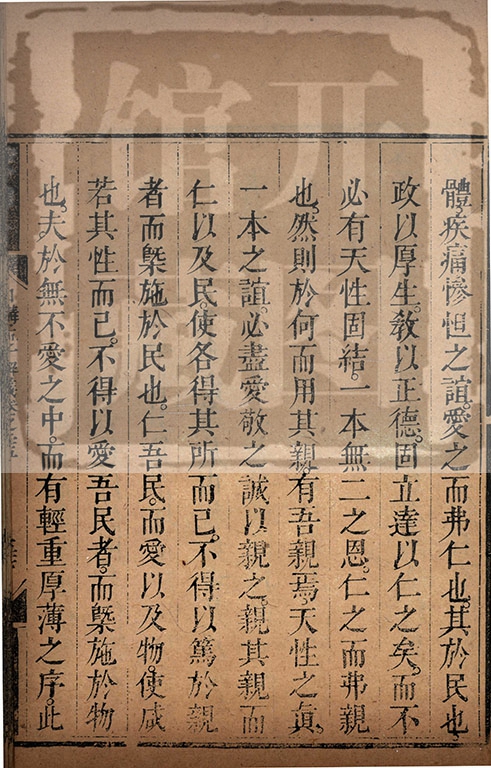 體疾痛慘怛之誼。愛之而弗仁也。其於民也。
政以厚生。敎以正德。固立達以仁之矣。而不
必有天性固結。一本無二之恩。仁之而弗親
也。然則於何而用其親。有吾親焉。天性之眞。
一本之誼。必盡愛敬之誠以親之。親其親而
仁以及民。使各得其所而已。不得以篤於親
者而槩施於民也。仁吾民。而愛以及物。使咸
若其性而已。不得以愛吾民者。而槩施於物
也。夫於無不愛之中。而有輕重厚薄之序。此